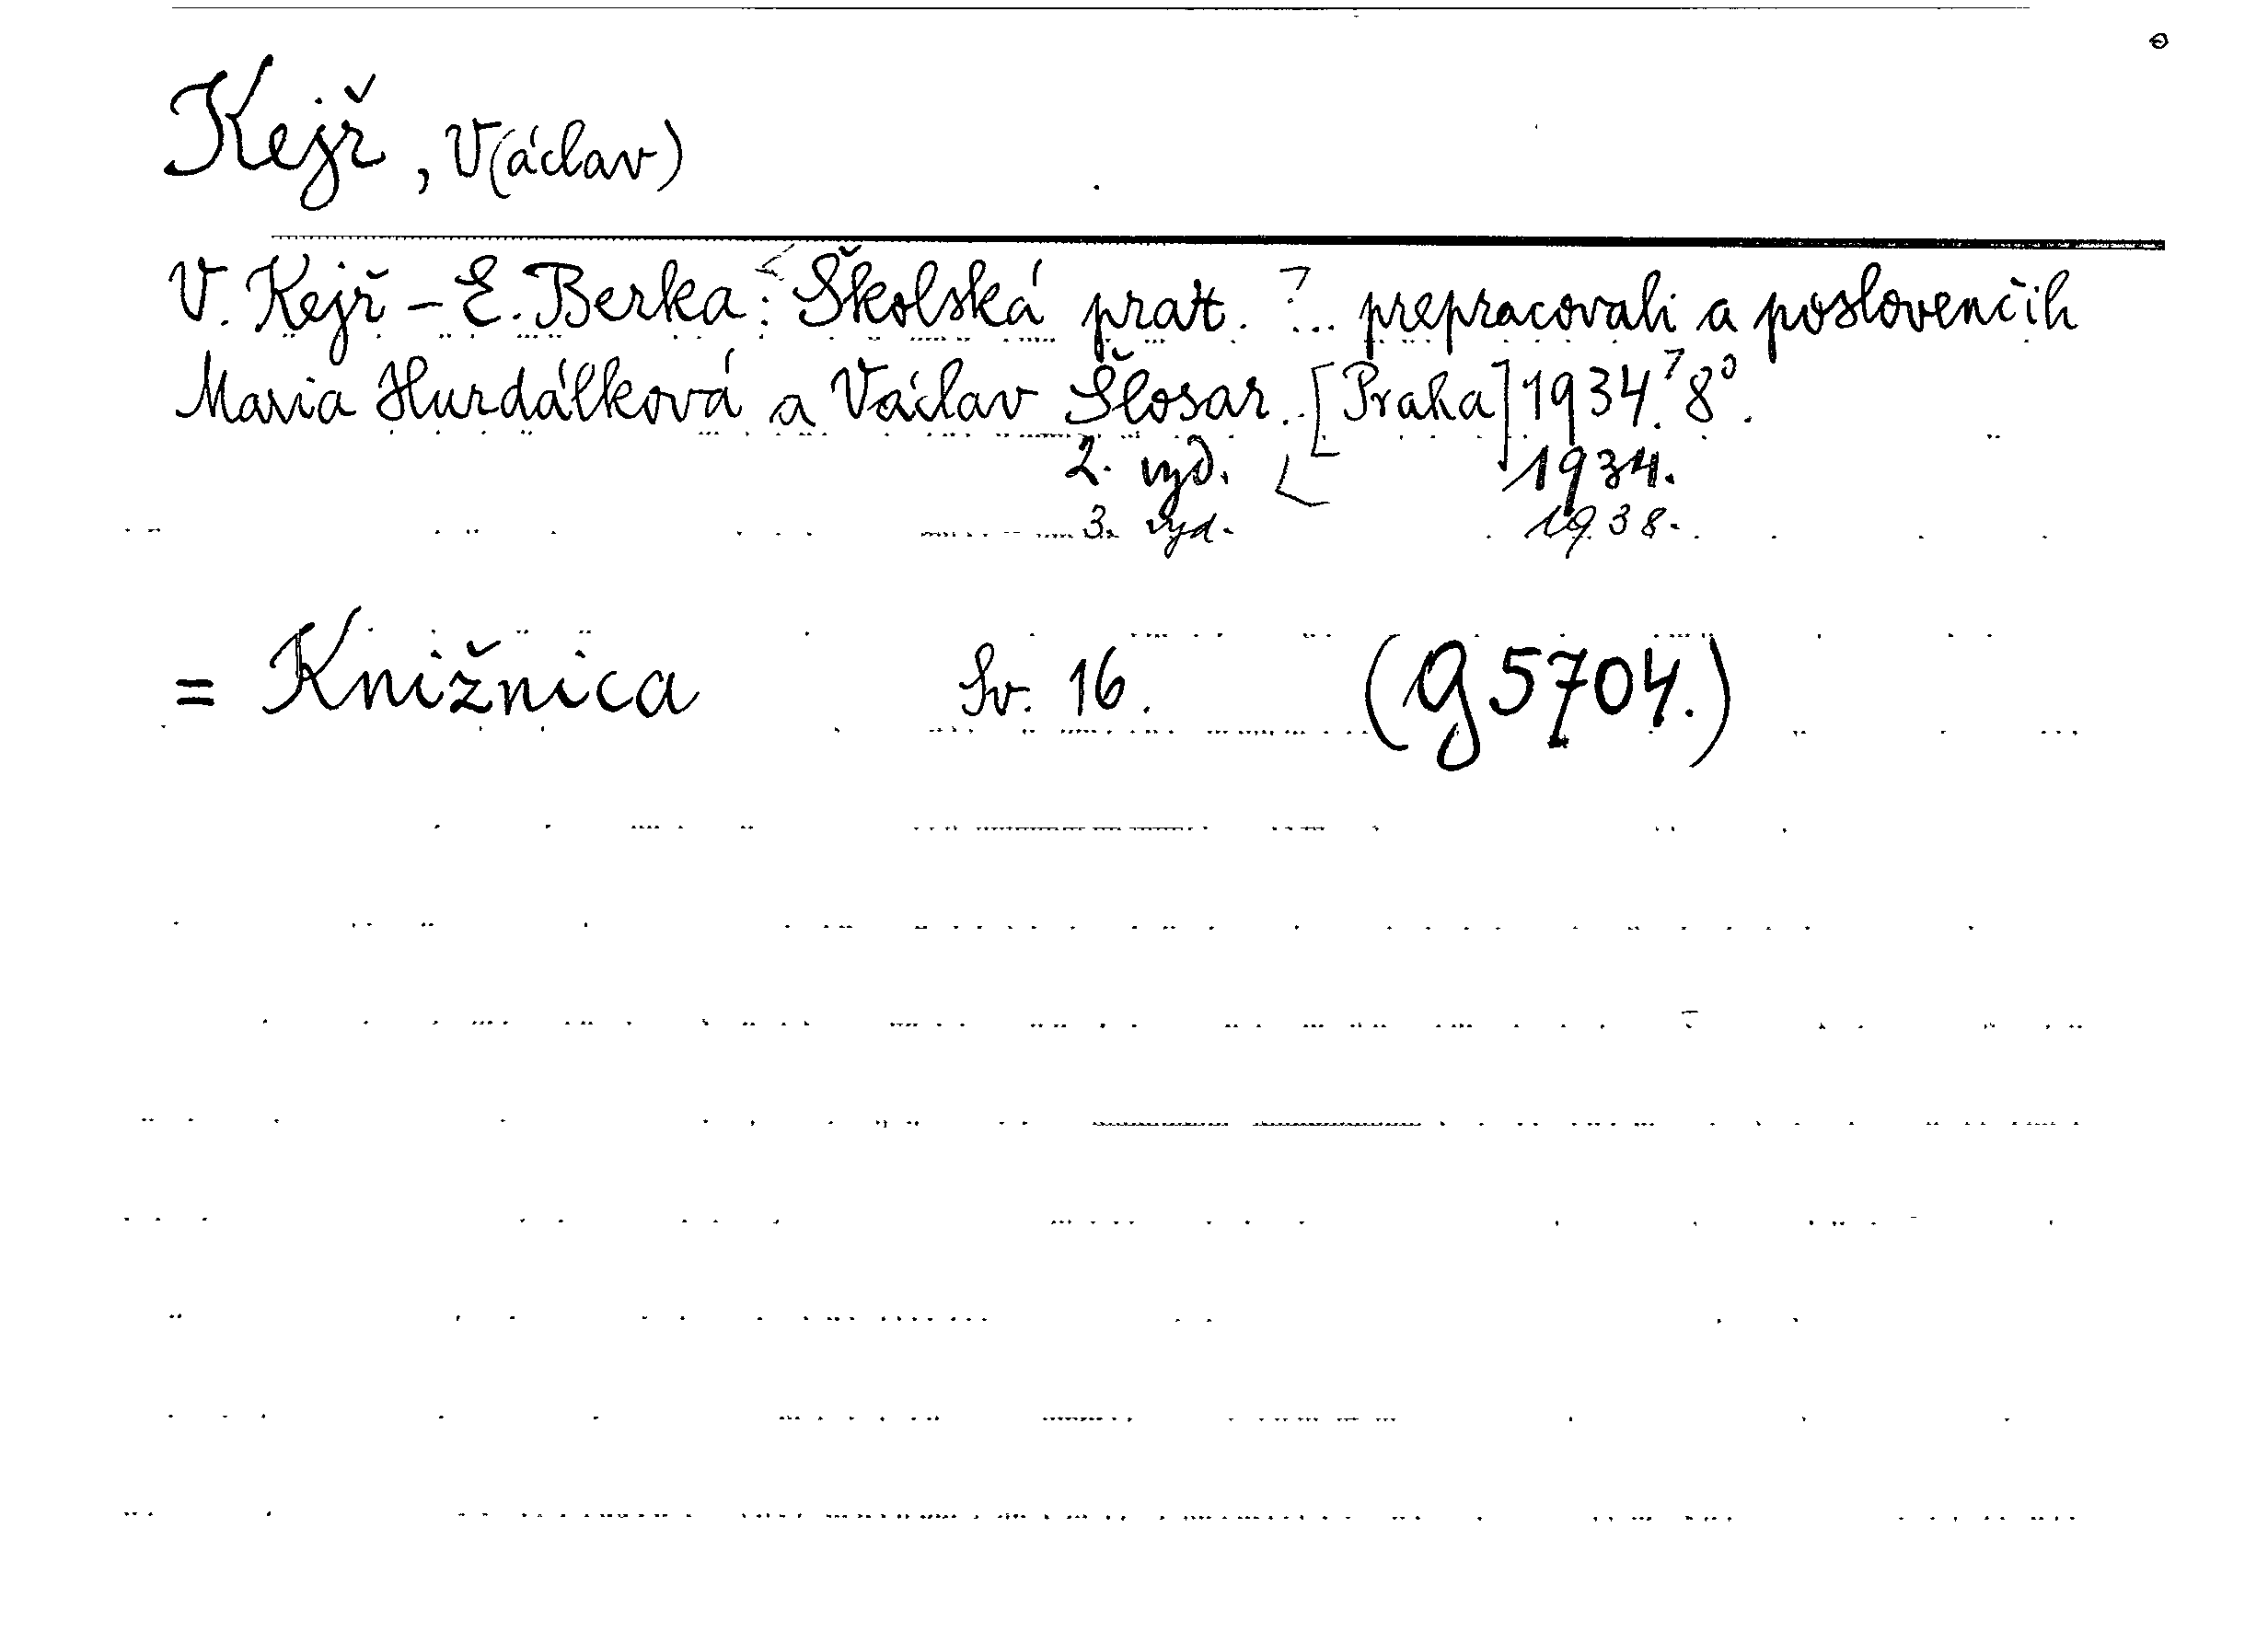 Kejř, V(áclav)
V. Kejř - E. Berka: Školská prax. ... prepracovali a poslovenčili
Maria Hurdálková a Václav Šlosar. [Praha] 1934. 8°.
2. vyd. 1934.
3. vyd. 1938.
= Knižnica Sv. 16. (G 5704.)